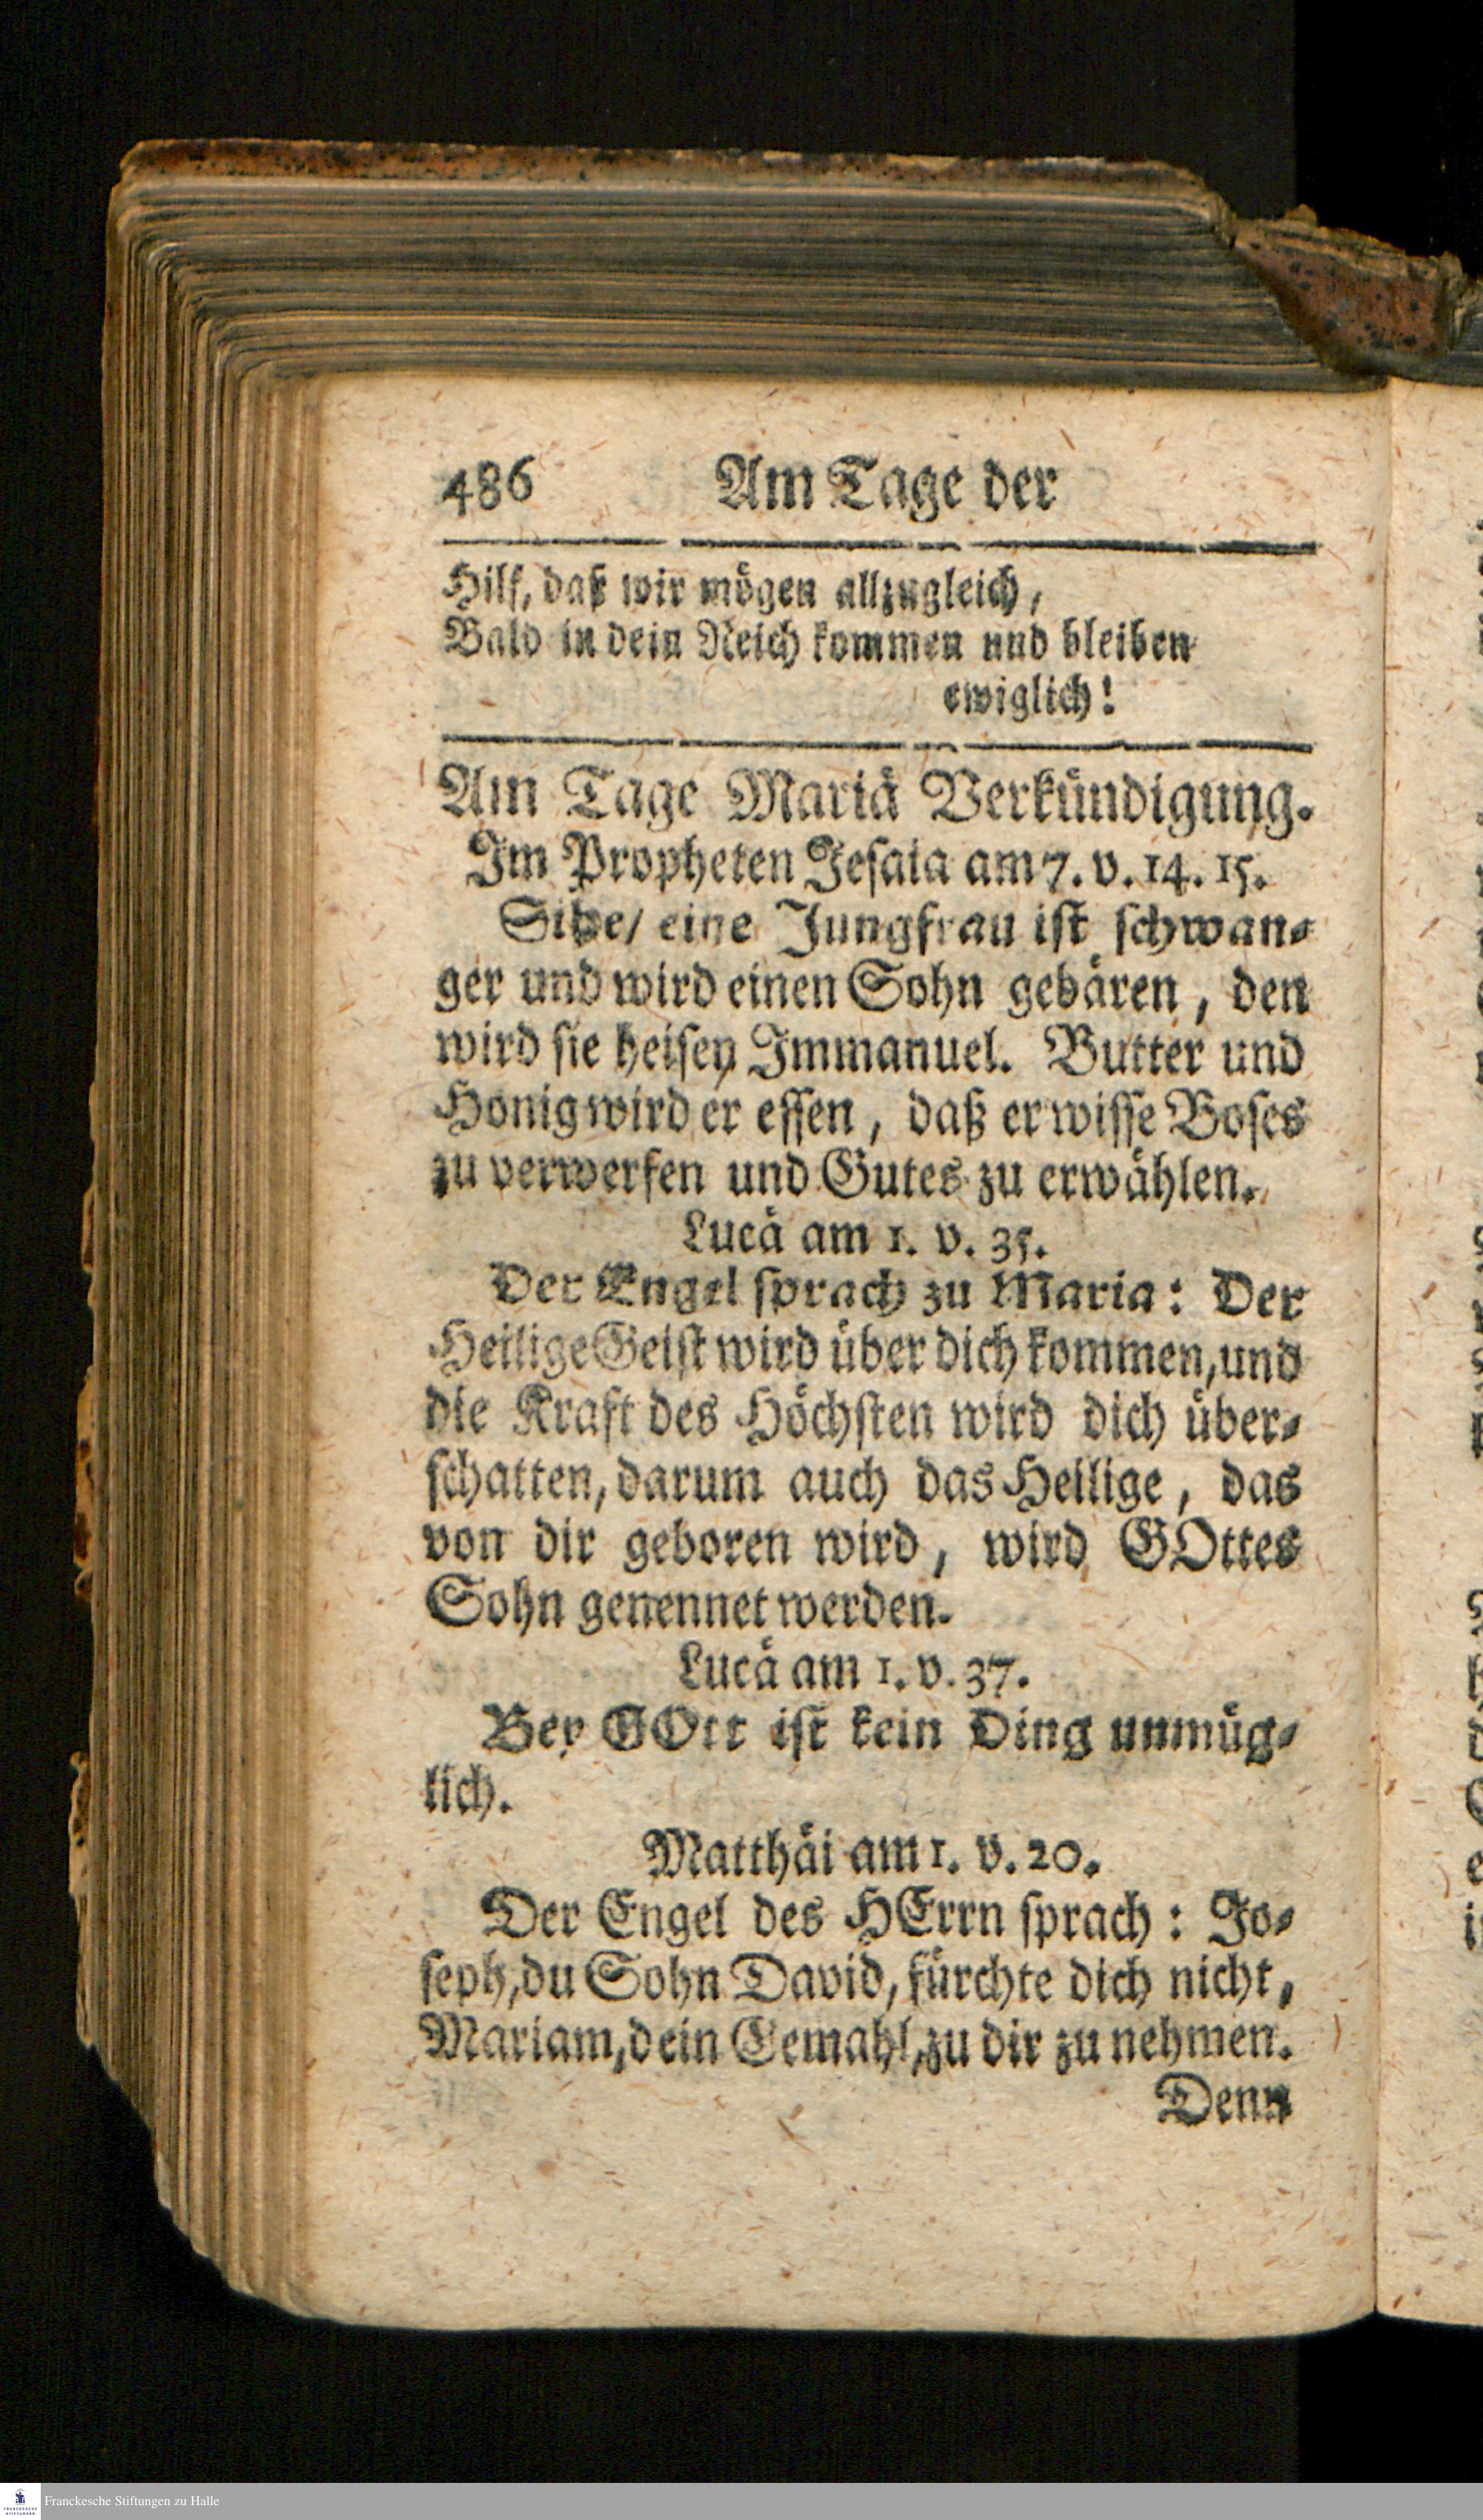 486 Am Tage der
Hilf, daß wir mögen allzugleich,
Bald in dein Reich kommen und bleiben
ewiglich!
Am Tage Mariä Verkündigung.
Im Propheten Jesaia am 7. v. 14. 15.
Sihe/ eine Jungfrau ist schwan-
ger und wird einen Sohn gebären, den
wird sie heisen Immanuel. Butter und
Honig wird er essen, daß er wisse Boses
zu verwerfen und Gutes zu erwählen.
Lucä am 1. v. 35.
Der Engel sprach zu Maria: Der
Heilige Geist wird über dich kommen, und
die Kraft des Höchsten wird dich über-
schatten, darum auch das Heilige, das
von dir geboren wird, wird GOttes
Sohn genennet werden.
Lucä am 1. v. 37.
Bey GOtt ist kein Ding unmüg-
lich.
Matthäi am 1. v. 20.
Der Engel des HErrn sprach: Jo-
seph, du Sohn David, fürchte dich nicht,
Mariam, dein Gemahl, zu dir zu nehmen.
Denn
Franckesche Stiftungen zu Halle